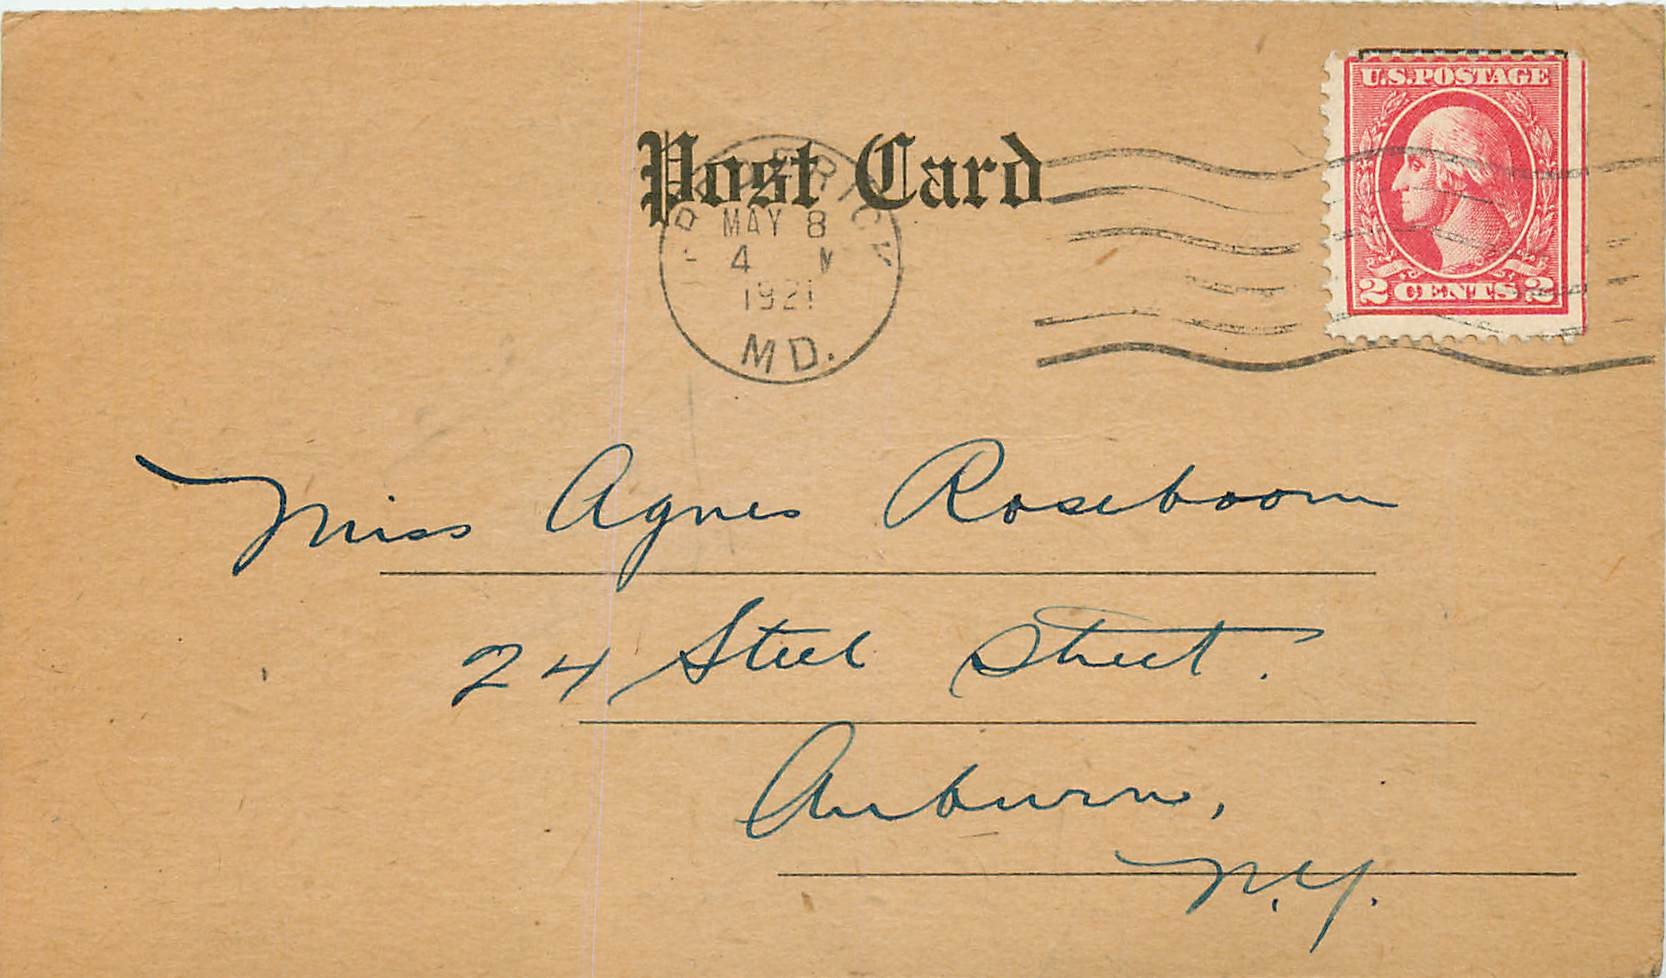 Post Card
FREDERICK
MAY 8
4 M
1921
MD.
U.S. POSTAGE
2 CENTS 2
Miss Agnes Roseboom
24 Steel Street.
Auburn,
N.Y.